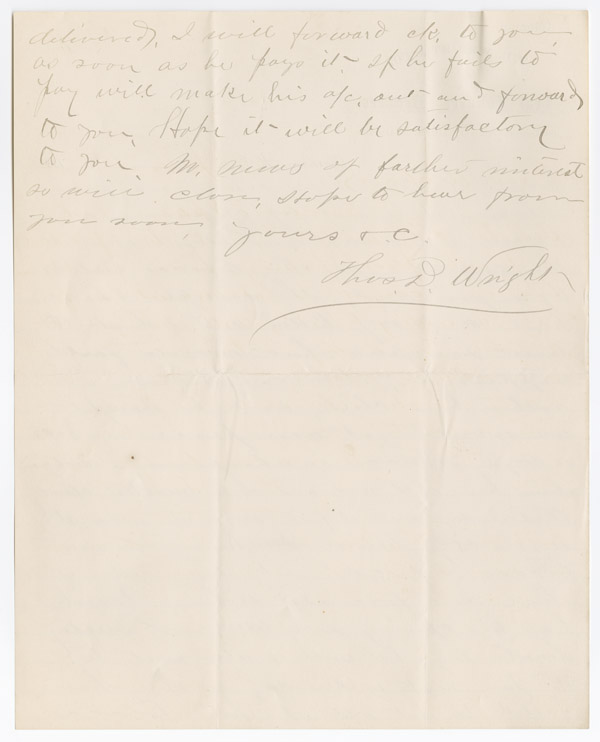 delivered), I will forward ck. to you,
as soon as he pays it. If he fails to
pay will make his a/c. out and forward
to you, Hope it will be satisfactory
to you No. news of farther interest
so will close, Hope to hear from
you soon,
Yours & C.
Thos. D. Wright